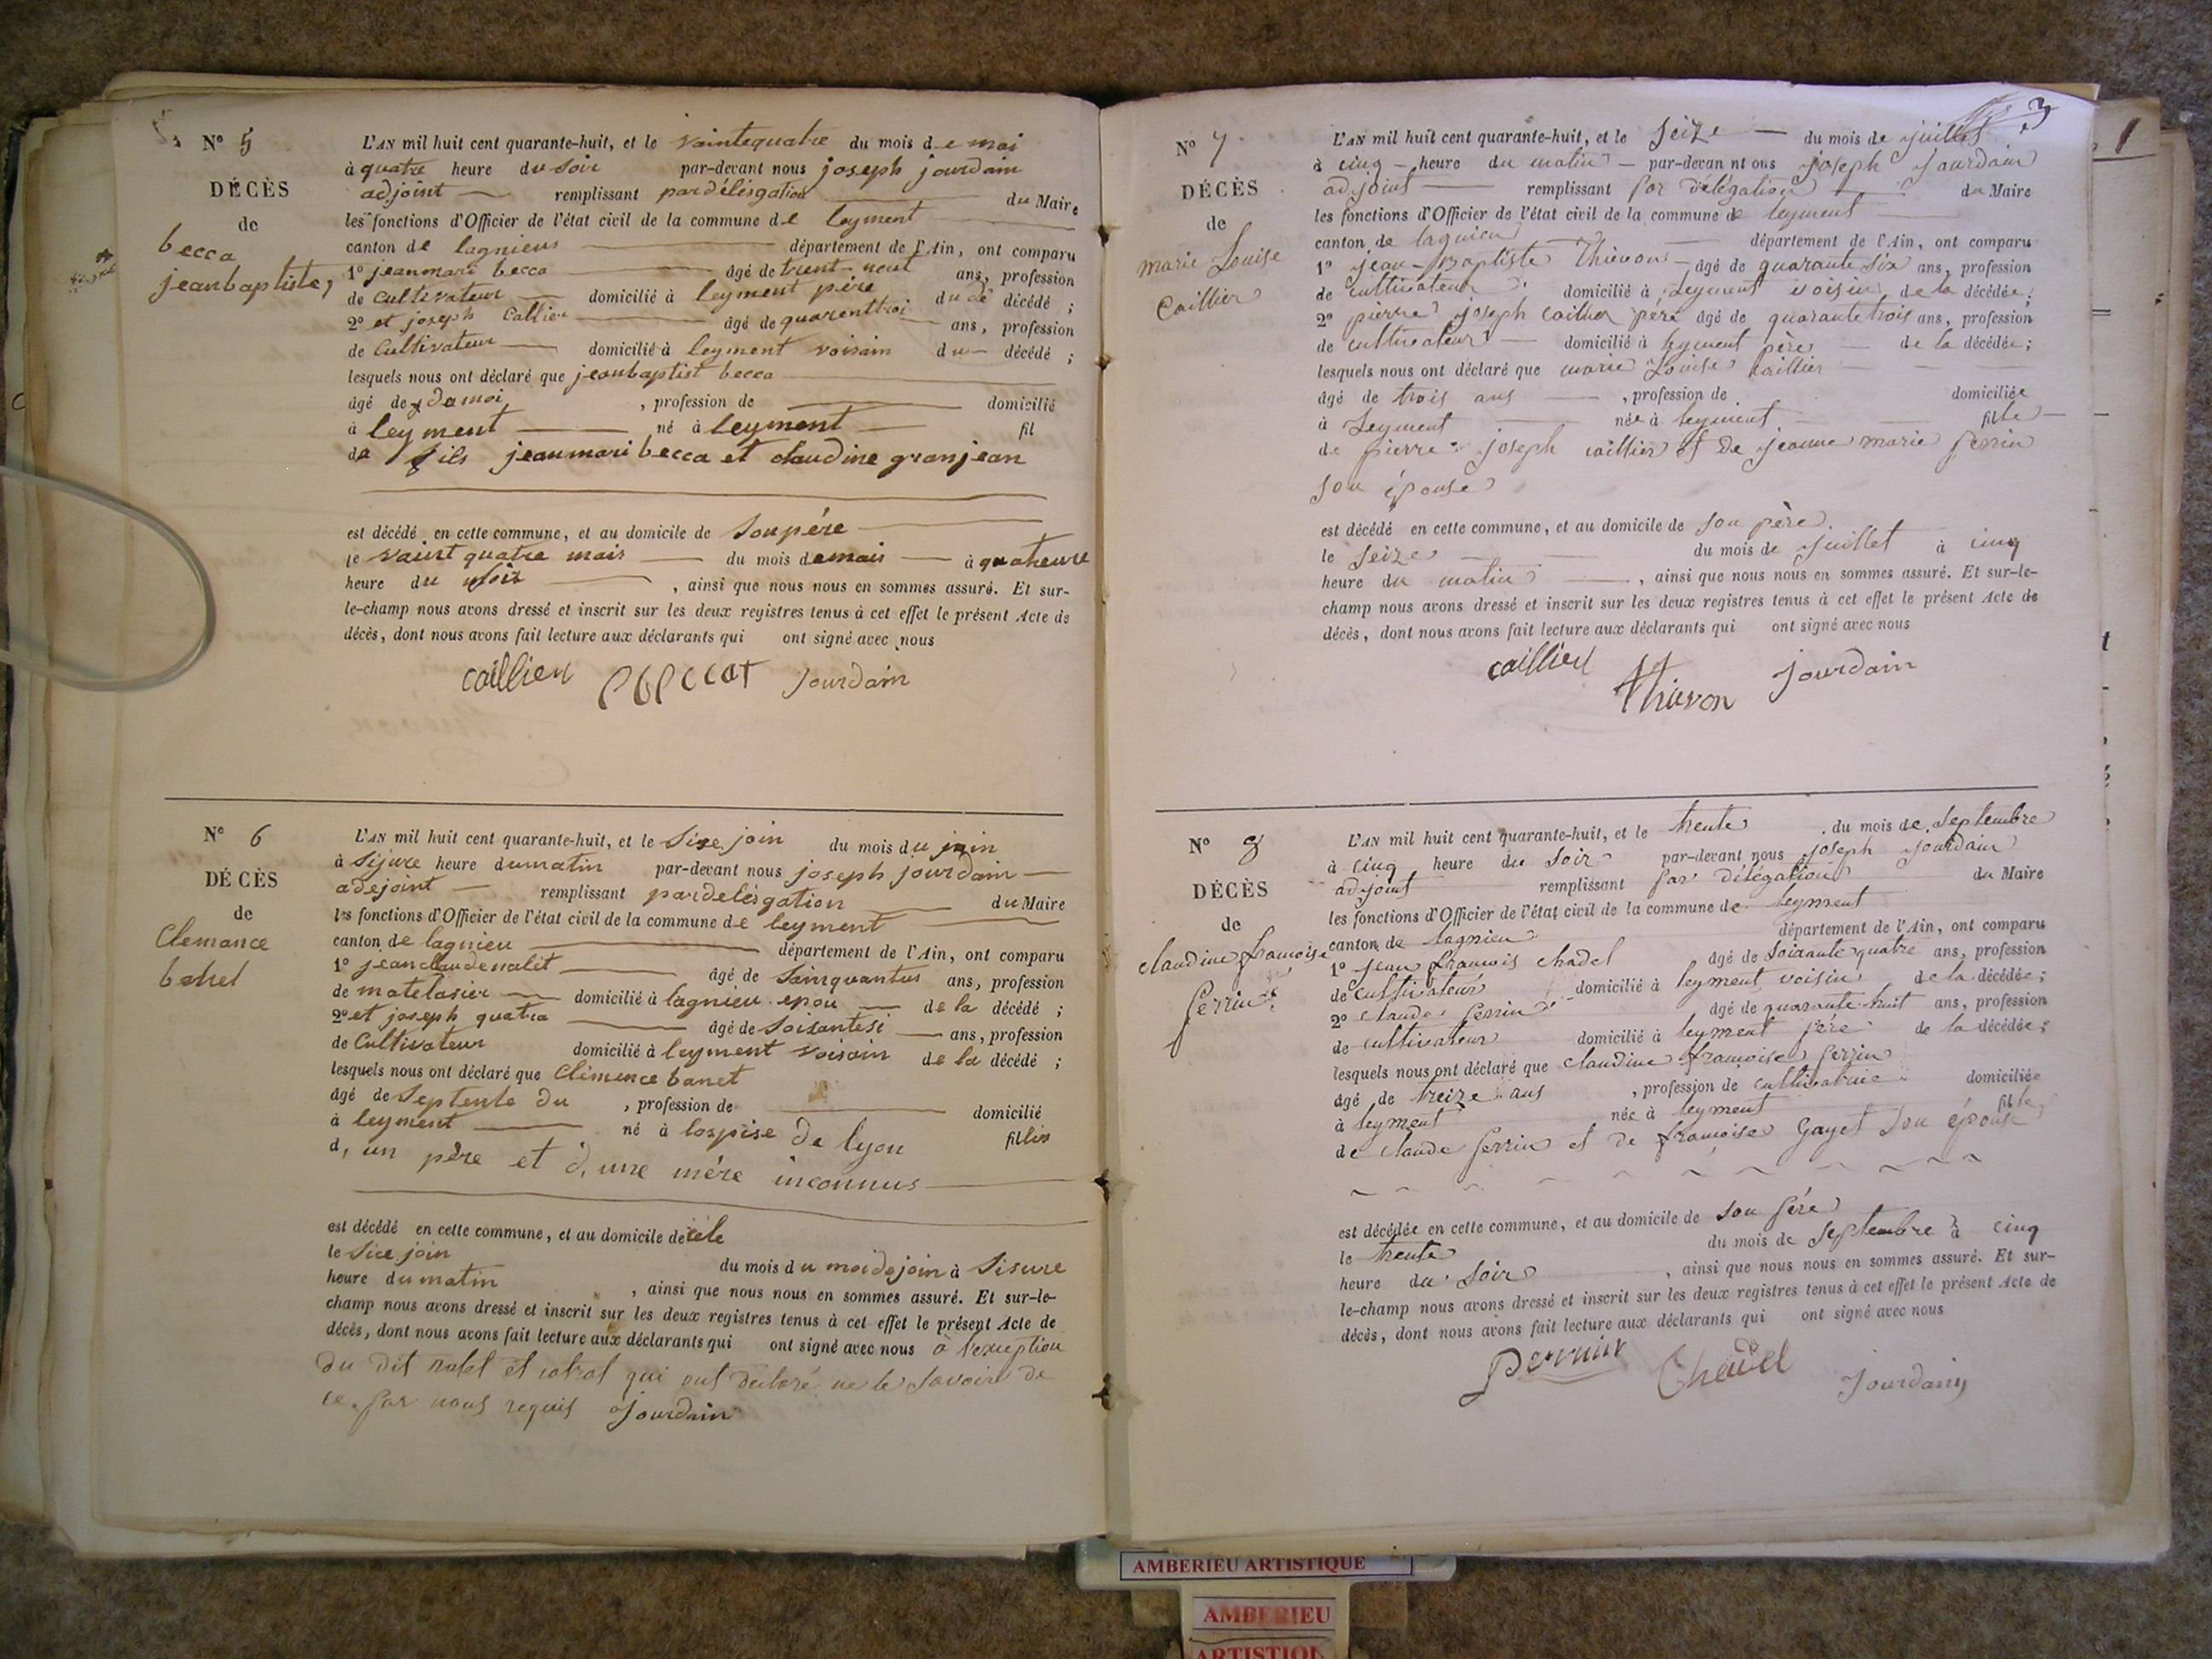 N° 5
DÉCÈS
de
becca
jeanbaptiste,
L'AN mil huit cent quarante-huit, et le vaintequatre du mois de mai
à quatre heure du soir par-devant nous joseph jourdain
adjoint remplissant par délésgation du Maire
les fonctions d'Officier de l'état civil de la commune de leyment
canton de lagnieus département de l'Ain, ont comparu
1° jeanmari becca âgé de trent-neuf ans, profession
de cultivateur domicilié à leyment père du dé décédé ;
2° et joseph Callier âgé de quarenttroi ans, profession
de Cultivateur domicilié à leyment voisain du décédé ;
lesquels nous ont déclaré que jeanbaptist becca
âgé de damoi , profession de domicilié
à leyment né à leyment fil
de fils jeanmari becca et claudine granjean
est décédé en cette commune, et au domicile de Sonpére
le vaint quatre mais du mois de mais à quateure
heure du soir , ainsi que nous nous en sommes assuré. Et sur-
le-champ nous avons dressé et inscrit sur les deux registres tenus à cet effet le présent Acte de
décès, dont nous avons fait lecture aux déclarants qui ont signé avec nous
caillier jourdain
N° 6
DÉCÈS
de
Clemance
L'AN mil huit cent quarante-huit, et le Sixe join du mois du juin
à sijure heure dumatin par-devant nous joseph jourdain
adejoint remplissant pardelésgation du Maire
les fonctions d'Officier de l'état civil de la commune de leyment
canton de lagnieu département de l'Ain, ont comparu
1° jeanclaudenalit âgé de Sainquantus ans, profession
de matelasier domicilié à lagnieu epou de la décédé ;
2° et joseph quatra âgé de Soisantesi ans, profession
de Cultivateur domicilié à leyment voisain de la décédé ;
lesquels nous ont déclaré que Clémence banet
âgé de Septente du , profession de domicilié
à leyment né à lospise de lyon fillis
d, un père et d, une mère inconnus
est décédé en cette commune, et au domicile de cele
le Sice join du mois du moidejoin à Sisure
heure dumatin , ainsi que nous nous en sommes assuré. Et sur-le-
champ nous avons dressé et inscrit sur les deux registres tenus à cet effet le présent Acte de
décès, dont nous avons fait lecture aux déclarants qui ont signé avec nous à l'exception
du dit nalet et catrat qui ont déclaré ne le savoir de
ce par nous requis Jourdain
3
1
N° 7
DÉCÈS
de
marie Louise
Caillier
L'AN mil huit cent quarante-huit, et le Seize du mois de juillet
à cinq heure du matin par-devan nt ous joseph jourdain
adjoint remplissant par délégation du Maire
les fonctions d'Officier de l'état civil de la commune de leyment
canton de lagnieu département de l'Ain, ont comparu
1° jean-Baptiste Thievon âgé de quarante Six ans, profession
de cultivateur domicilié à Leyment voisin de la décédée ;
2° pierre joseph caillier père âgé de quarante trois ans, profession
de cultivateur domicilié à leyment père de la décédée ;
lesquels nous ont déclaré que marie Louise caillier
âgé de trois ans , profession de domiciliée
à Leyment née à leyment fille
de pierre joseph caillier et De jeanne marie perrin
son épouse
est décédé en cette commune, et au domicile de son père
le Seize du mois de juillet à cinq
heure du matin , ainsi que nous nous en sommes assuré. Et sur-le-
champ nous avons dressé et inscrit sur les deux registres tenus à cet effet le présent Acte de
décès, dont nous avons fait lecture aux déclarants qui ont signé avec nous
caillier Thievon jourdain
N° 8
DÉCÈS
de
claudine françoise
perrin
L'AN mil huit cent quarante-huit, et le trente du mois de Septembre
à cinq heure du Soir par-devant nous joseph jourdain
adjoint remplissant par délégation du Maire
les fonctions d'Officier de l'état civil de la commune de leyment
canton de lagnieu département de l'Ain, ont comparu
1° jean francois chadel âgé de soixante quatre ans, profession
de cultivateur domicilié à leyment voisin de la décédée ;
2° claude perrin âgé de quarante huit ans, profession
de cultivateur domicilié à leyment père de la décédée ;
lesquels nous ont déclaré que claudine françoise perrin
âgé de treize ans , profession de cultivatrice domiciliée
à leyment née à leyment fille
de claude perrin et de françoise Gayet son épouse
est décédée en cette commune, et au domicile de son père
le trente du mois de Septembre à cinq
heure du Soir , ainsi que nous nous en sommes assuré. Et sur-
le-champ nous avons dressé et inscrit sur les deux registres tenus à cet effet le présent Acte de
décès, dont nous avons fait lecture aux déclarants qui ont signé avec nous
Perrin Chadel Jourdain
AMBERIEU ARTISTIQUE
AMBERIEU
ARTISTIQU